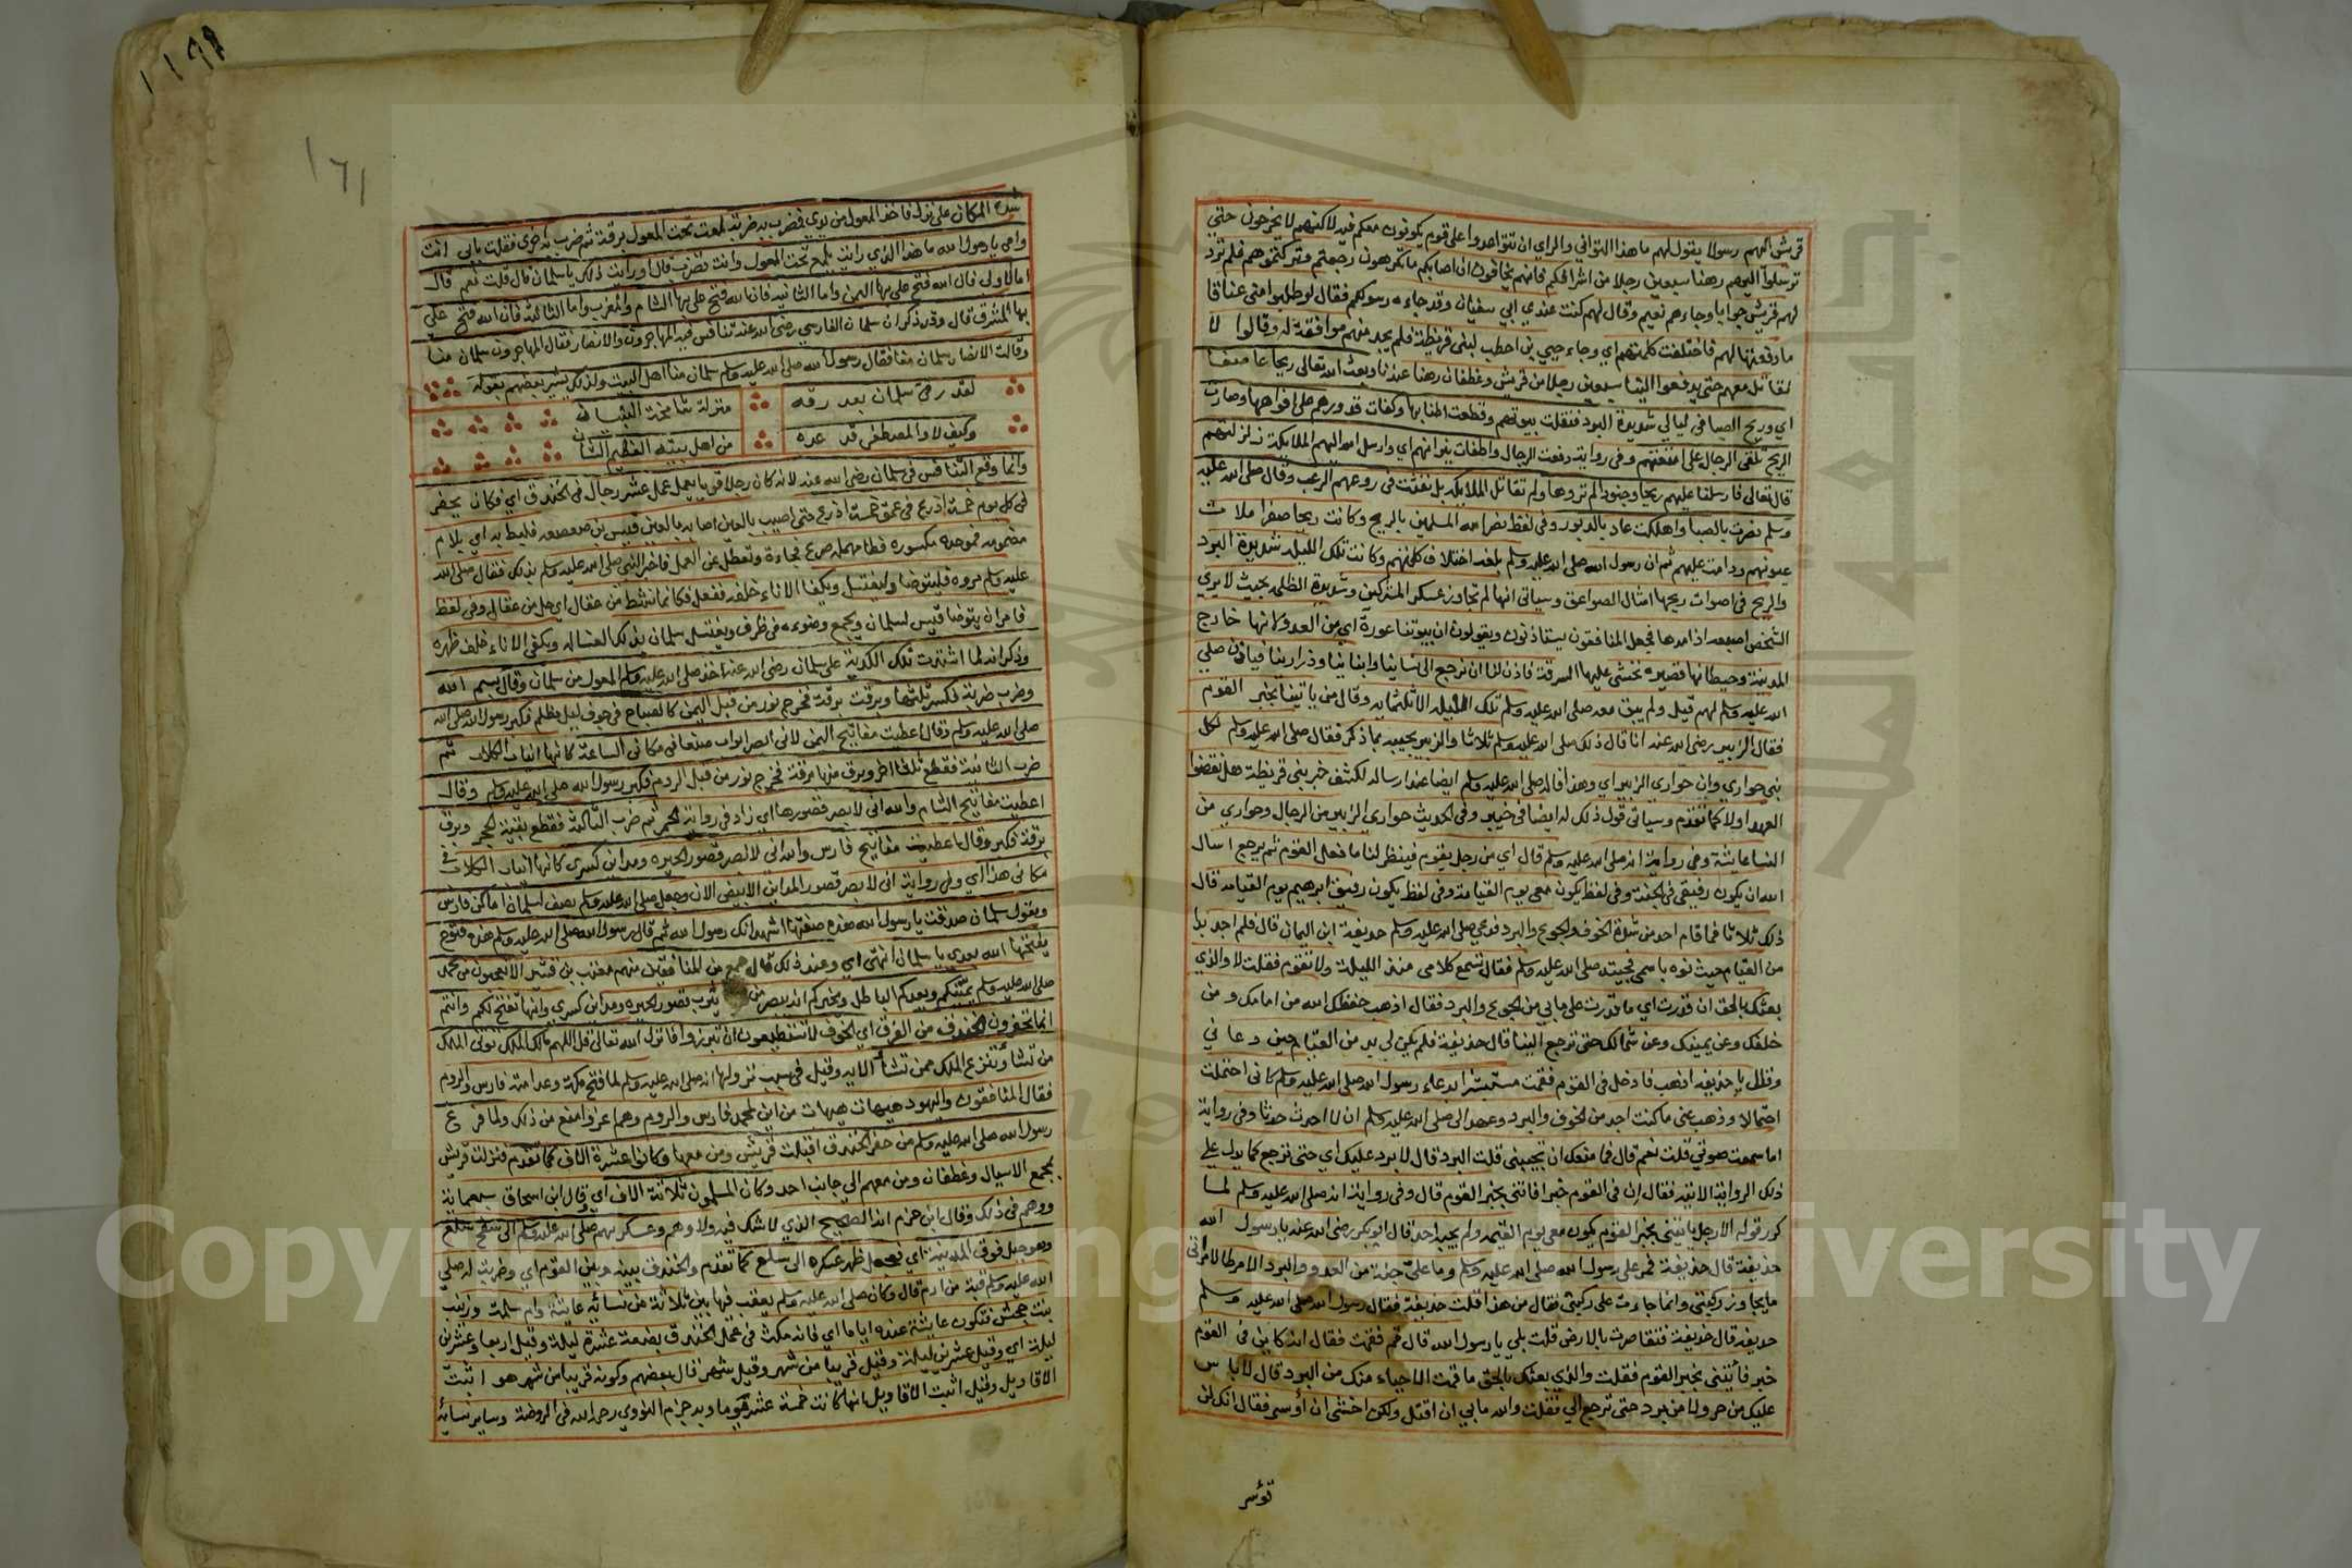 قريش اليهم رسولا يقول لهم ما هذا التواني والراي ان تتواعدوا على قوم يكونون معكم فيه لاكنهم لا يخرجون حتى
ترسلوا اليهم رهنا سبعين رجلا من اشرافكم فانهم يخافون ان اصابكم ما تكرهون رجعتم وتركتموهم فلم ترد
لهم قريش جوابا وجاءهم نعيم وقال لهم كنت عند ابي سفيان وقد جاءه رسولكم فقال لو طلبوا مني عناقا
ما دفعتها لهم فاختلفت كلمتهم اي وجاء حيي بن اخطب لبني قريظة فلم يجد منهم موافقة له وقالوا لا
نقاتل معهم حتى يدفعوا الينا سبعين رجلا من قريش وغطفان رهنا عندنا وبعث الله تعالى ريحا عاصفا
اي وريح الصبا في ليالي شديدة البرد فنقلت بيوتهم وقطعت اطنابها وكفات قدورهم على افواهها وصارت
الريح تلقي الرجال على امتعتهم وفي رواية دفعت الرجال واطفات نيرانهم اي وارسل الله اليهم الملايكة زلزلتهم
قال تعالى فارسلنا عليهم ريحا وجنودا لم تروها ولم تقاتل الملايكة بل نفثت في روعهم الرعب وقال صلى الله عليه
وسلم نصرت بالصبا واهلكت عاد بالدبور وفي لفظ نصر الله المسلمين بالريح وكانت ريحا صفرا ملات
عيونهم ودامت عليهم ثم ان رسول الله صلى الله عليه وسلم بلغه اختلاف كلمتهم وكانت تلك الليلة شديدة البرد
والريح في اصوات ريحها امثال الصواعق وسياتي انها لم تجاوز عسكر المشركين وشديدة الظلمة بحيث لا يرى
الشخص اصبعه اذا مدها فجعل المنافقون يستاذنون ويقولون ان بيوتنا عورة اي من العدو لانها خارج
المدينة وحيطانها قصيرة نخشى عليها السرقة فاذن لنا ان نرجع الى نساينا وابناينا وذرارينا فياذن صلى
الله عليه وسلم لهم قيل ولم يبق معه صلى الله عليه وسلم تلك الليلة الا ثلثماية وقال من ياتينا بخبر القوم
فقال الزبير رضي الله عنه انا قال ذلك صلى الله عليه وسلم ثلاثا والزبير يجيبه بما ذكر فقال صلى الله عليه وسلم لكل
نبي حواري وان حواري الزبير اي وهذا قاله صلى الله عليه وسلم ايضا عند ارساله لكشف خبر بني قريظة هل نقضوا
العهد اولا كما تقدم وسياتي قول ذلك له ايضا في خيبر وفي الحديث حواري الزبير من الرجال وحواري من
النسا عايشة وفي رواية انه صلى الله عليه وسلم قال اي من رجل يقوم فينظر لنا ما فعل القوم ثم يرجع اسال
الله ان يكون رفيقي في الجنة وفي لفظ يكون معي يوم القيامة وفي لفظ يكون رفيق ابرهيم يوم القيامة قال
ذلك ثلاثا فما قام احد من شدة الخوف والجوع والبرد فدعى صلى الله عليه وسلم حذيفة ابن اليمان قال فلم اجد بدا
من القيام حيث نوه باسمي فجيته صلى الله عليه وسلم فقال تسمع كلامي منذ الليلة ولا تقوم فقلت لا والذي
بعثك بالحق ان قدرت اي ما قدرت على ما بي من الجوع والبرد فقال اذهب حفظك الله من امامك ومن
خلفك وعن يمينك وعن شمالك حتى ترجع الينا قال حذيفة فلم يكن لي بد من القيام حين دعاني
وقال يا حذيفه اذهب فادخل في القوم فقمت مستبشرا بدعاء رسول الله صلى الله عليه وسلم كاني احتملت
احتمالا وذهب عني ما كنت اجد من الخوف والبرد وعهد الي صلى الله عليه وسلم ان لا احدث حدثا وفي رواية
اما سمعت صوتي قلت نعم قال فما منعك ان تجيبني قلت البرد قال لا برد عليك اي حتى ترجع كما يدل على
ذلك الرواية الاتية فقال ان في القوم خبرا فاتني بخبر القوم قال وفي رواية انه صلى الله عليه وسلم لما
كرر قوله الا رجل ياتيني بخبر القوم يكون معي يوم القيمة ولم يجبه احد قال ابو بكر رضي الله عنه يا رسول الله
حذيفة قال حذيفة فمر علي رسول الله صلى الله عليه وسلم وما علي جنة من العدو والبرد الا مرطا لامراتي
ما يجاوز ركبتي وانا جاءث على ركبتي فقال من هذا قلت حذيفة فقال رسول الله صلى الله عليه وسلم
حذيفة قال حذيفة فتقاصرت بالارض قلت بلى يا رسول الله قال قم فقمت فقال انه كاين في القوم
خبر فأتني بخبر القوم فقلت والذي بعثك بالحق ما قمت الا حياء منك من البرد قال لا باس
عليك من حر ولا من برد حتى ترجع الي فقلت والله ما بي ان اقتل ولكن اخشى ان أوسر فقال انك لن
تؤسر
١٦١
شدة المكان علي نزل فاخذ المعول من يدي فضرب به ضربة لمعت تحت المعول برقة ثم ضرب به اخرى فقلت بابي انت
وامي يا رسول الله ما هذا الذي رايت يلمع تحت المعول وانت تضرب قال اورايت ذلك يا سلمان قال قلت نعم قال
اما الاولى فان الله فتح علي بها اليمن واما الثانية فان الله فتح علي بها الشام والمغرب واما الثالثة فان الله فتح علي
بها المشرق قال وقد ذكر ان سلمان الفارسي رضي الله عنه تنافس فيه المهاجرون والانصار فقال المهاجرون سلمان منا
وقالت الانصار سلمان منا فقال رسول الله صلى الله عليه وسلم سلمان منا اهل البيت ولذلك يشير بعضهم بقوله
لقد رقى سلمان بعد رقه منزلة شامخة البنيان
وكيف لا والمصطفى قد عده من اهل بيته العظيم الشان
وانما وقع التنافس في سلمان رضي الله عنه لانه كان رجلا قويا يعمل عمل عشر رجال في الخندق اي فكان يحفر
في كل يوم خمسة اذرع في عمق خمسة اذرع حتى اصيب بالعين اصابه بالعين قيس بن صعصعة فلبط به اي بلام
مضمومه فموحدة مكسوره فطا مهملة صرع فجاءة وتعطل عن العمل فاخبر النبي صلى الله عليه وسلم بذلك فقال صلى الله
عليه وسلم مروه فليتوضا وليغتسل ويكفا الاناء خلفه ففعل فكانما نشط من عقال اي حل من عقال وفي لفظ
فامر ان يتوضا قيس لسلمان ويجمع وضوءه في ظرف ويغتسل سلمان بتلك الغسالة ويكفى الاناء خلف ظهره
وذكر انه لما اشتدت تلك الكدية على سلمان رضي الله عنه اخذ صلى الله عليه وسلم المعول من سلمان وقال بسم الله
وضرب ضربة فكسر ثلثها وبرقت برقة فخرج نور من قبل اليمن كالمصباح في جوف ليل مظلم فكبر رسول الله صلى الله
صلى الله عليه وسلم وقال اعطيت مفاتيح اليمن لاني ابصر ابواب صنعا في مكاني الساعة كانها انياب الكلاب ثم
ضرب الثانية فقطع ثلثا اخر وبرق منها برقة فخرج نور من قبل الروم فكبر رسول الله صلى الله عليه وسلم وقال
اعطيت مفاتيح الشام والله اني لابصر قصورها اي زاد في رواية الحمر ثم ضرب الثالثة فقطع بقية الحجر وبرق
برقة فكبر وقال اعطيت مفاتيح فارس والله اني لابصر قصور الحيره ومداين كسرى كانها انياب الكلاب في
مكاني هذا اي وفي رواية اني لابصر قصور المداين الابيض الان وجعل صلى الله عليه وسلم يصف لسلمان اماكن فارس
ويقول سلمان صدقت يا رسول الله هذه صفتها اشهد انك رسول الله ثم قال رسول الله صلى الله عليه وسلم هذه فتوح
يفتحها الله بعدي يا سلمان انتهى اي وعند ذلك قال جمع من المنافقين منهم معتب بن قشير الا تعجبون من محمد
صلى الله عليه وسلم يمنيكم ويعدكم الباطل ويخبركم انه يبصر من يثرب قصور الحيره ومداين كسرى وانها تفتح لكم وانتم
انما تحفرون الخندق من الفرق اي الخوف لا تستطيعون ان تبرزوا فانزل الله تعالى قل اللهم مالك الملك توتي الملك
من تشا وتنزع الملك ممن تشأ الايه وقيل في سبب نزولها انه صلى الله عليه وسلم لما فتح مكة وعد امته فارس والروم
فقال المنافقون واليهود هيهات هيهات من اين لمحمد فارس والروم وهم اعز وامنع من ذلك ولما فرغ
رسول الله صلى الله عليه وسلم من حفر الخندق اقبلت قريش ومن معها وكانوا عشرة الاف كما تقدم فنزلت قريش
بمجمع الاسيال وغطفان ومن معهم الى جانب احد وكان المسلمون ثلاثة الاف اي قال ابن اسحاق سبعماية
ووهم في ذلك وقال ابن حزم انه الصحيح الذي لا شك فيه ولا وهم وعسكر بهم صلى الله عليه وسلم الى سفح سلع
وهو جبل فوق المدينة اي فجعل ظهر عسكره الى سلع كما تقدم والخندق بينه وبين القوم اي وضربت له صلى
الله عليه وسلم قبة من ادم قال وكان صلى الله عليه وسلم يعقب فيها بين ثلاثة من نسائه عايشة وام سلمة وزينب
بنت جحش فتكون عايشة عنده اياما اي فانه مكث في عمل الخندق بضعة عشرة ليلة وقيل اربعا وعشرين
ليلة اي وقيل عشرين ليلة وقيل قريبا من شهر وقيل شهر قال بعضهم وكونه قريبا من شهر هو اثبت
الاقاويل وقيل اثبت الاقاويل انها كانت خمسة عشر يوما وبه جزم النووي رحمه الله في الروضة وساير نسائه
Copyright © King Saud University